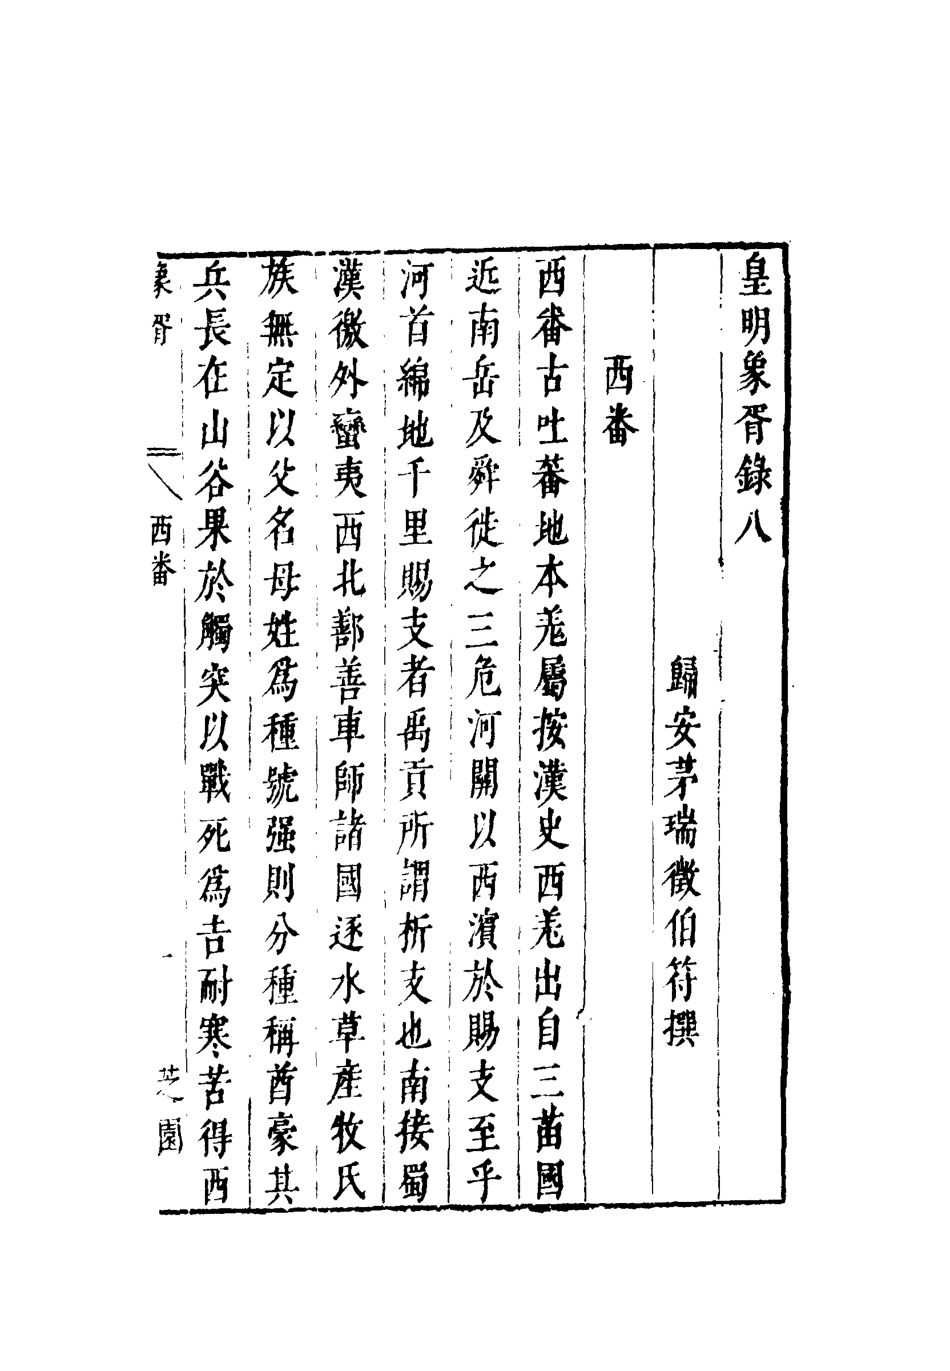 皇明象胥錄八
歸安茅瑞徵伯符撰
西番
西番古吐蕃地本羌屬按漢史西羌出自三苗國
近南岳及舜徙之三危河關以西濱於賜支至乎
河首綿地千里賜支者禹貢所謂析支也南接蜀
漢徼外蠻夷西北鄯善車師諸國逐水草產牧氏
族無定以父名母姓為種號强則分種稱酋豪其
兵長在山谷果於觸突以戰死為吉耐寒苦得西
象胥
西番
一
芝園